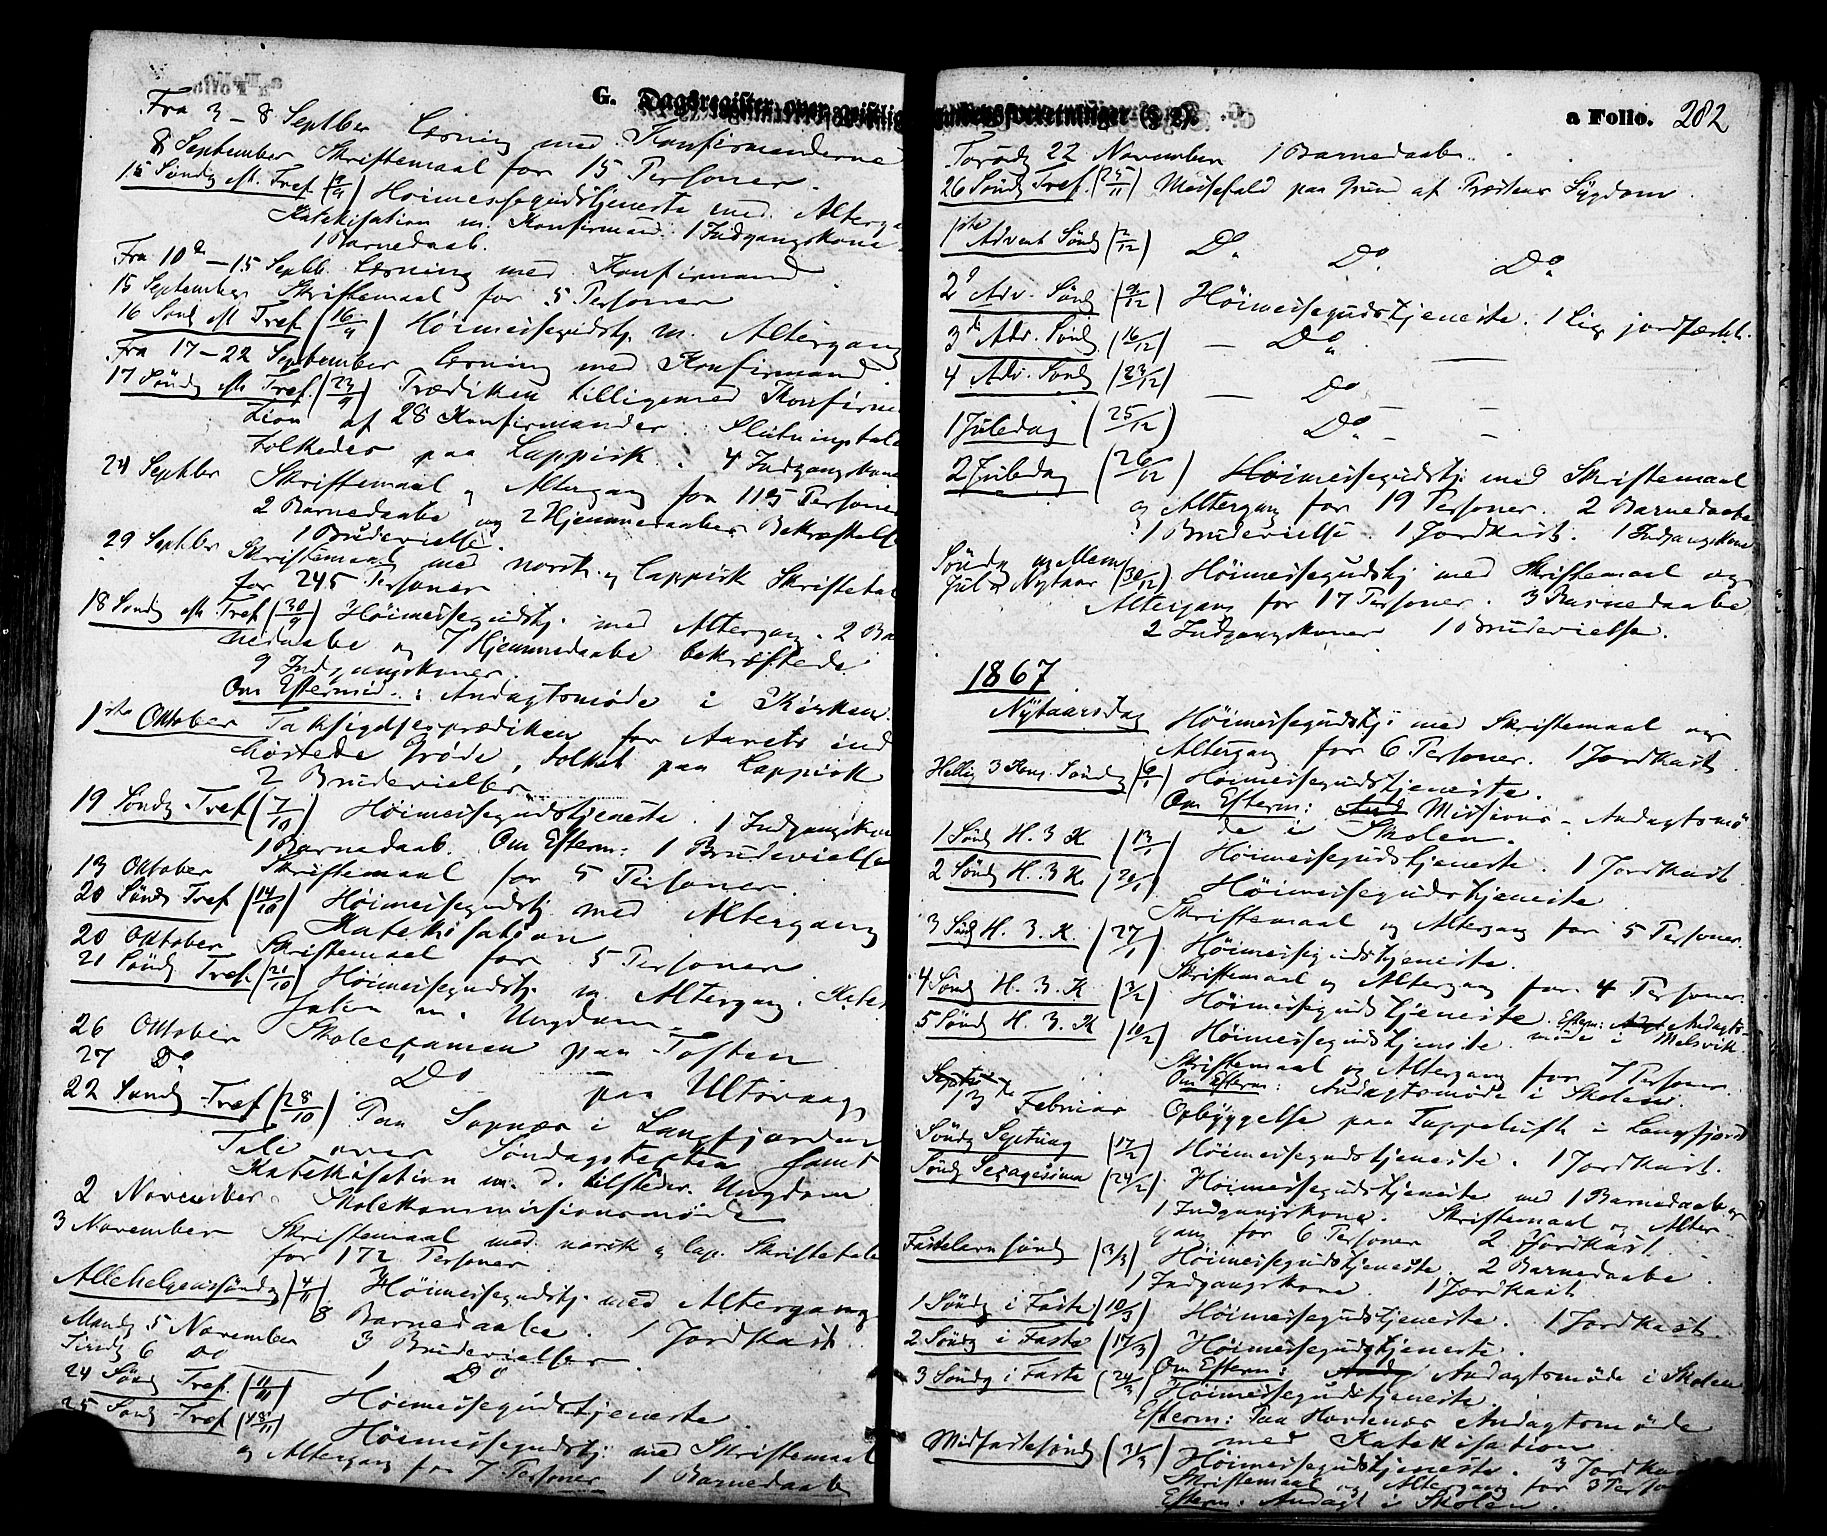 G. Dagsregister over geistlige Embedsforretninger
Fra 3 – 8 Septbr Læsning med Konfirmanderne
8 September Skriftemaal for 15 Personer.
15 Søndg eft. Tref. (9/9) Høimessegudstjeneste med Alterga
Katekisation m. Konfirmand. 1 Indgangskone
1 Barnedaab.
Fra 10de – 15 Septb. Læsning med Konfirmand
15 September Skriftemaal for 5 Personer
16 Sønd eft Tref (16/9) Høimessegudstj. m. Altergang
Fra 17 – 22 September Læsning med Konfirmand.
17 Søndg eft. Tref. (23/9) Prædiken tilligemed Konfirma
tion af 28 Konfirmander. Slutningstale
tolkedes paa Lappisk. 4 Indgangskone
24 Septbr Skriftemaal og Altergang for 115 Personer
2 Barnedaabe og 2 Hjemmedaabes Bekræftelse
1 Brudevielse.
29 Septbr Skriftemaal med norsk og lappisk Skriftetal
for 245 Personer
18 Søndg eft. Tref (30/9) Høimessegudstj. med Altergang. 2 Bar
nedaabe og 7 Hjemmedaabe bekræftede
9 Indgangskoner.
Om Eftermid.: Andagtsmøde i Kirken.
1ste Oktober Taksigelsesprædiken for Aarets ind
høstede Grøde, tolket paa Lappisk
2 Brudevielser
19 Søndg Tref (7/10) Høimessegudstjeneste. 1 Indgangskon
1 Barnedaab. Om Efterm: 1 Brudevielse
13 Oktober Skriftemaal for 5 Personer.
20 Søndg Tref (14/10) Høimessegudstj. med Altergang
Katekisation
20 Oktober Skriftemaal for 5 Personer
21 Søndg Tref (21/10) Høimessegudstj m. Altergang. Kateki
sation m. Ungdom
26 Oktober Skoleexamen paa Toften
27 Do Do paa Ultvaag
22 Søndg Tref (28/10) Paa Sopnæs i Langfjorden
Tale over Søndagstexten samt
Katekisation m. d. tilstedev. Ungdom
2 November Skolekommissionsmøde
3 November Skriftemaal med norsk og lap. Skriftetale
for 172 Personer
Allehelgenssøndg (4/11) Høimessegudstj. med Altergang
8 Barnedaabe. 1 Jordkast.
Mandg 5 November 3 Brudevielser
Tirsdg 6 Do 1 Do
24 Søndg Tref. (11/11) Høimessegudstjeneste
25 Søndg Tref (18/11) Høimessegudstj. med Skriftemaal
og Altergang for 7 Personer 1 Barnedaab
a Folio. 282
Torsdg 22 November 1 Barnedaab.
26 Søndg Tref. (25/11) Messefald paa Grund af Præstens Sygdom.
1ste Advent Søndg (2/12) Do. Do. Do.
2d Adv. Søndg (9/12) Høimessegudstjeneste. 1 Lig jordfæstet.
3de Adv. Søndg (16/12) — Do. —
4 Adv. Søndg (23/12) — Do — —
1 Juledag (25/12) Do. — —
2 Juledag (26/12) Høimessegudstj. med Skriftemaal
og Altergang for 19 Personer. 2 Barnedaabe
1 Brudevielse. 1 Jordkast. 1 Indgangskone
Søndg mellem
Jul & Nytaar (30/12) Høimessegudstj med Skriftemaal og
Altergang for 17 Personer. 3 Barnedaabe
2 Indgangskoner 1 Brudevielse.
1867
Nytaarsdag Høimessegudstj. med Skriftemaal og
Altergang for 6 Personer. 1 Jordkast.
Hellig 3 Kong. Søndg (6/1) Høimessegudstjeneste.
Om Efterm: And Missions-Andagtsmø
de i Skolen.
1 Søndg H. 3 K (13/1) Høimessegudstjeneste. 1 Jordkast.
2 Søndg H. 3 K. (20/1) Høimessegudstjeneste
Skriftemaal og Altergang for 5 Personer.
3 Søndg H. 3. K. (27/1) Høimessegudstjeneste.
Skriftemaal og Altergang for 4 Personer.
4 Søndg H. 3. K (3/2) Høimessegudstjeneste. Efterm: Andgt Andagts
møde i Melsvik.
5 Søndg H. 3. K (10/2) Høimessegudstjeneste
Skriftemaal og Altergang for 7 Personer.
Om Efterm: Andagtsmøde i Skolen.
Septu
13de Februar Opbyggelse paa Tappeluft i Langfjord
Søndg Septuag (17/2) Høimessegudstjeneste. 1 Jordkast.
Søndg Sexagesima (24/2) Høimessegudstjeneste med 1 Barnedaab og
1 Indgangskone. Skriftemaal og Alter-
gang for 6 Personer 2 Jordkast.
Fastelavnssøndg (3/3) Høimessegudstjeneste. 2 Barnedaabe.
1 Indgangskone. 1 Jordkast
1 Søndg i Faste (10/3) Høimessegudstjeneste. 1 Jordkast.
2 Søndg i Faste (17/3) Høimessegudstjeneste.
Om Efterm: And Andagtsmøde i Skolen
3 Søndg i Faste (24/3) Høimessegudstjeneste.
Efterm: Paa Hovdenæs Andagtsmøde
med Katekisation
Midfastesøndg (31/3) Høimessegudstjeneste. 3 Jordkast
Skriftemaal og Altergang for 3 Perso
Efterm: Andagt i Skolen.